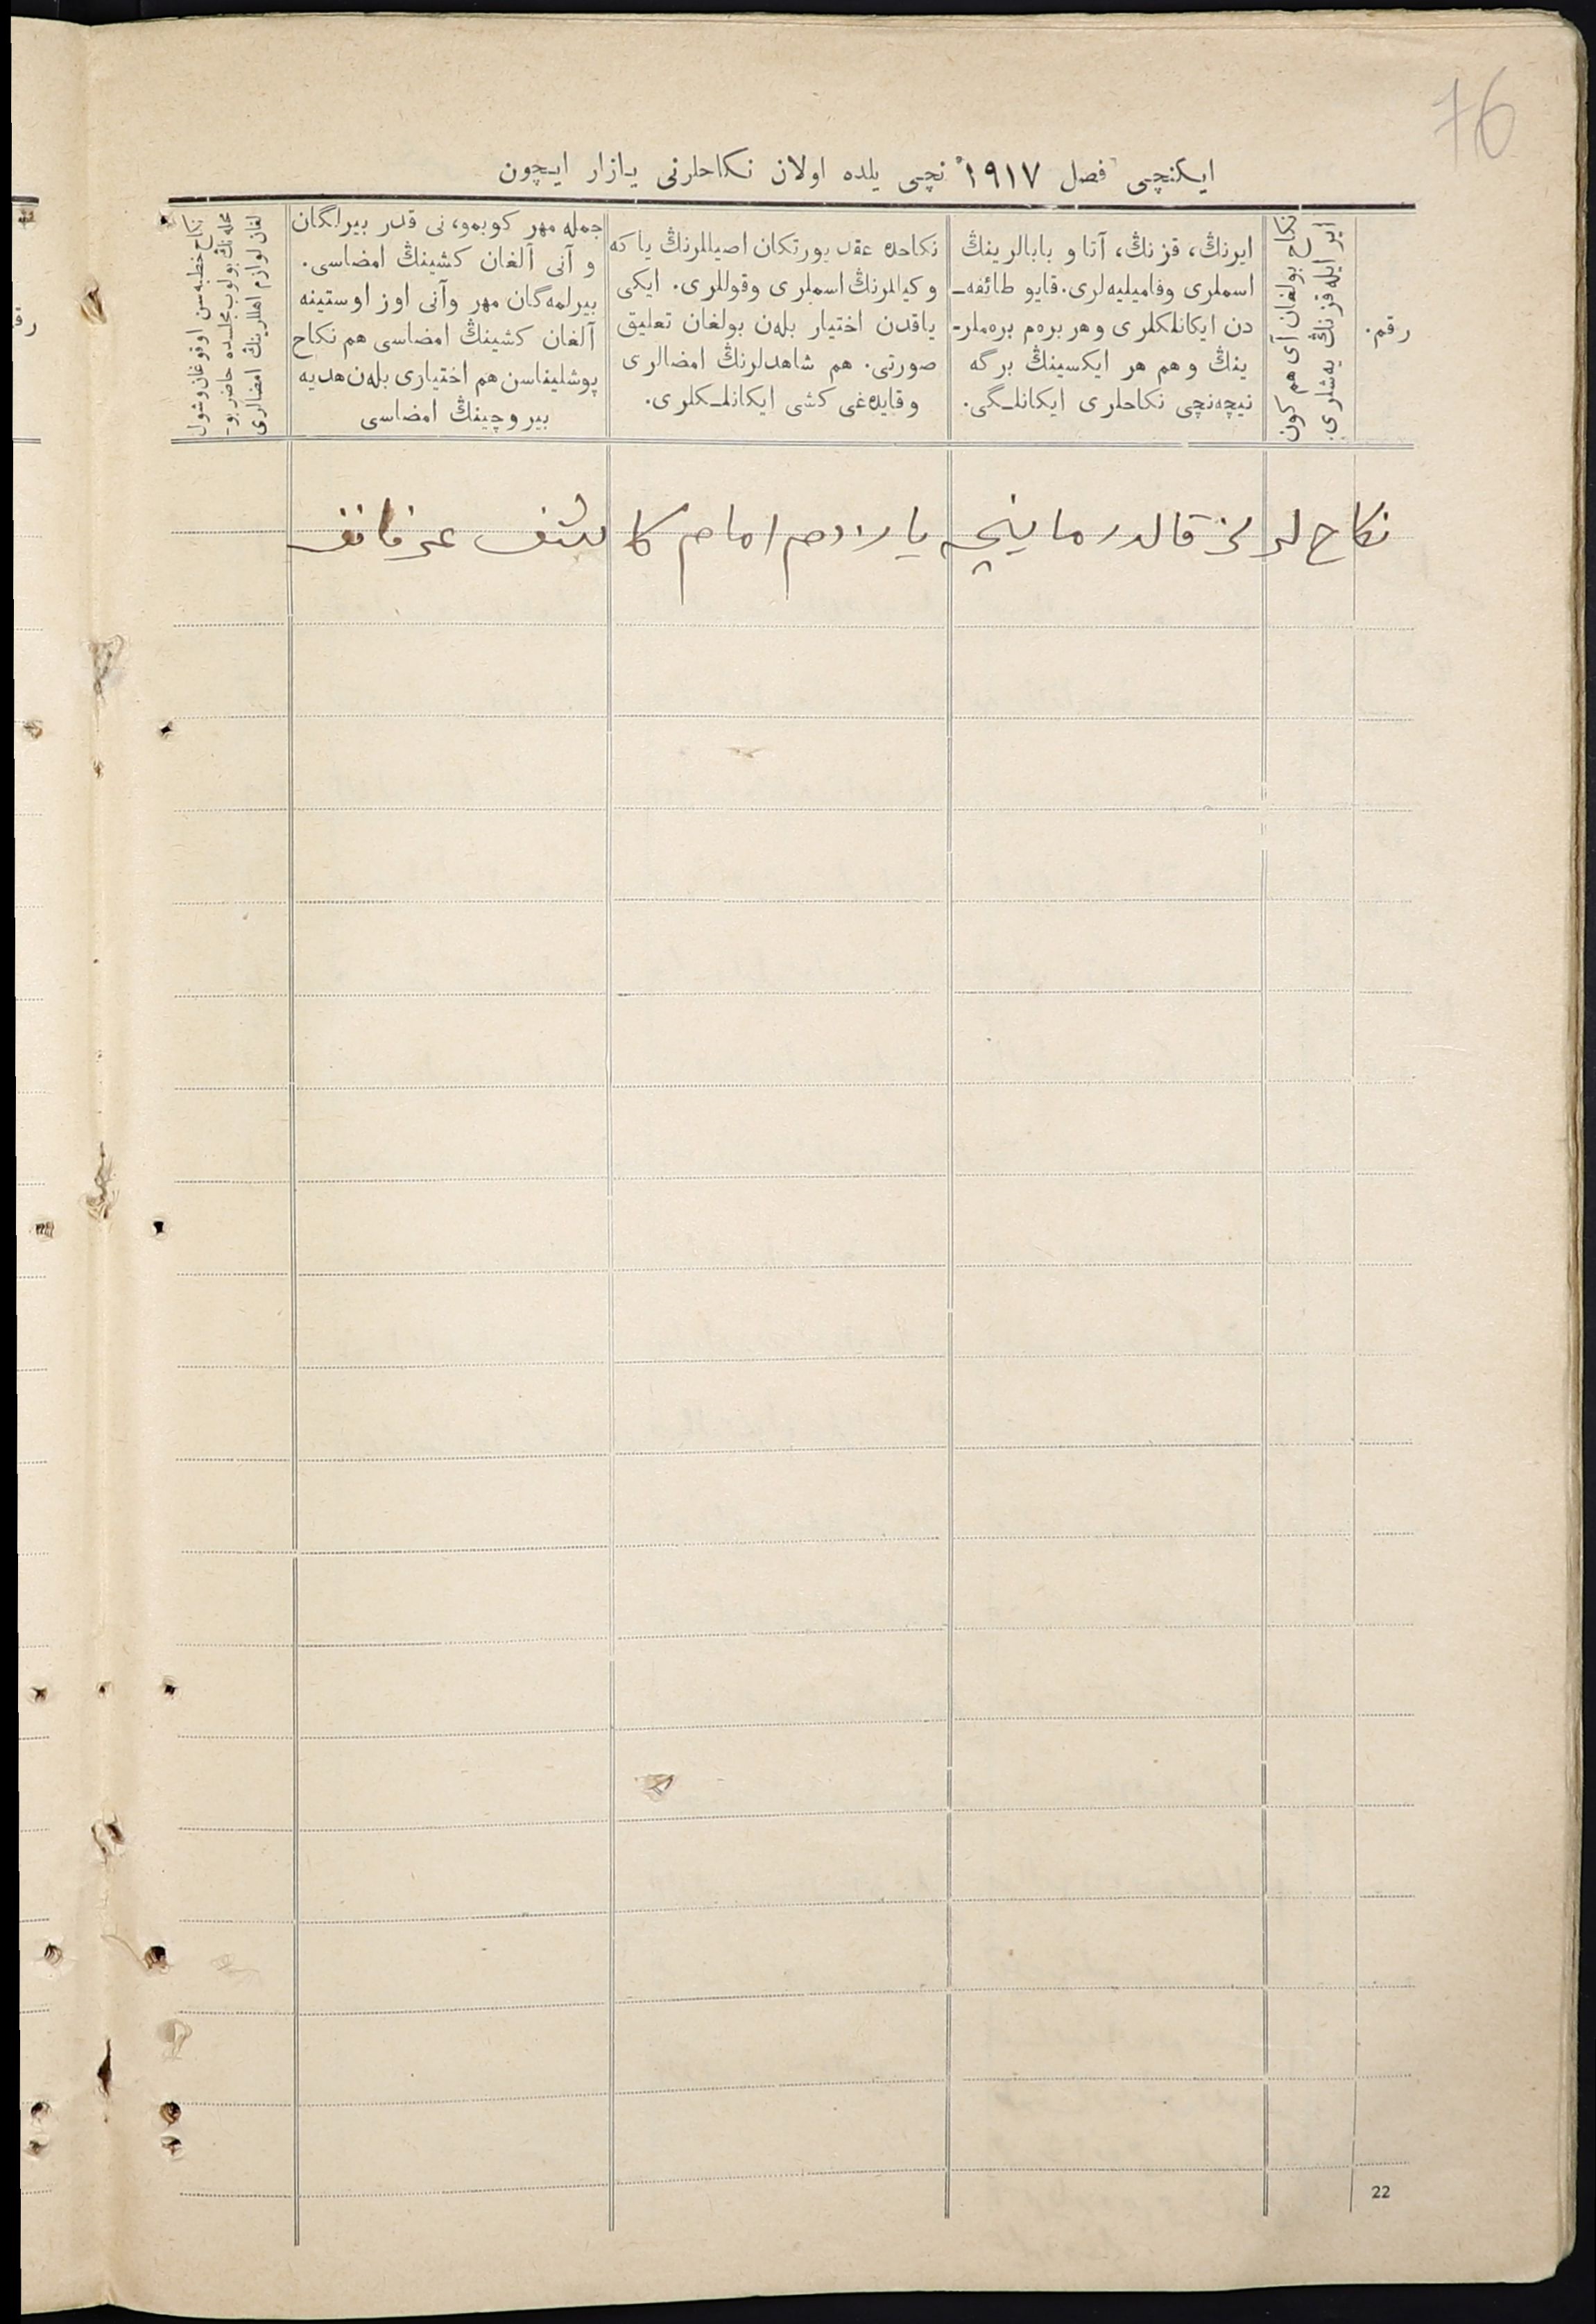 76
ایکنچی فصل ۱۹۱۷ نچی یلده اولان نکاحلرنی یازار ایچون
رقم.
ایر ایله قزنڭ یه‌شلری.
نکاح بولغان آی هم کون
ایرنڭ، قزنڭ، آتا و بابالرینڭ
اسملری وفامیلیه‌لری. قایو طائفه‌ـ
دن ایکانلکلری و هر بره‌م بره‌ملرـ
ینڭ و هم هر ایکسینڭ برگه
نیچه‌نچی نکاحلری ایکانلـگی.
نکاحده عقد یورتکان اصیللرنڭ یا که
وکیللرنڭ اسملری وقوللری. ایکی
یاقدن اختیار بله‌ن بولغان تعلیق
صورتی. هم شاهدلرنڭ امضالری
وقایده‌غی کشی ایکانلـکلری.
جمله مهر کوبمو، نی قدر بیرلگان
و آنی آلغان کشینڭ امضاسی.
بیرلمه‌گان مهر وآنی اوز اوستینه
آلغان کشینڭ امضاسی هم نکاح
پوشلیناسن هم اختیاری بله‌ن هدیه
بیروچینڭ امضاسی
نکاح خطبه‌سن اوقوغان وشول
محله‌نڭ بولوب مجلسده حاضر بو-
لغان لوازم اهللرینڭ امضالری
نکاح لر یازقالدرمانیچه یارادم امام کاشف عرفانف
22